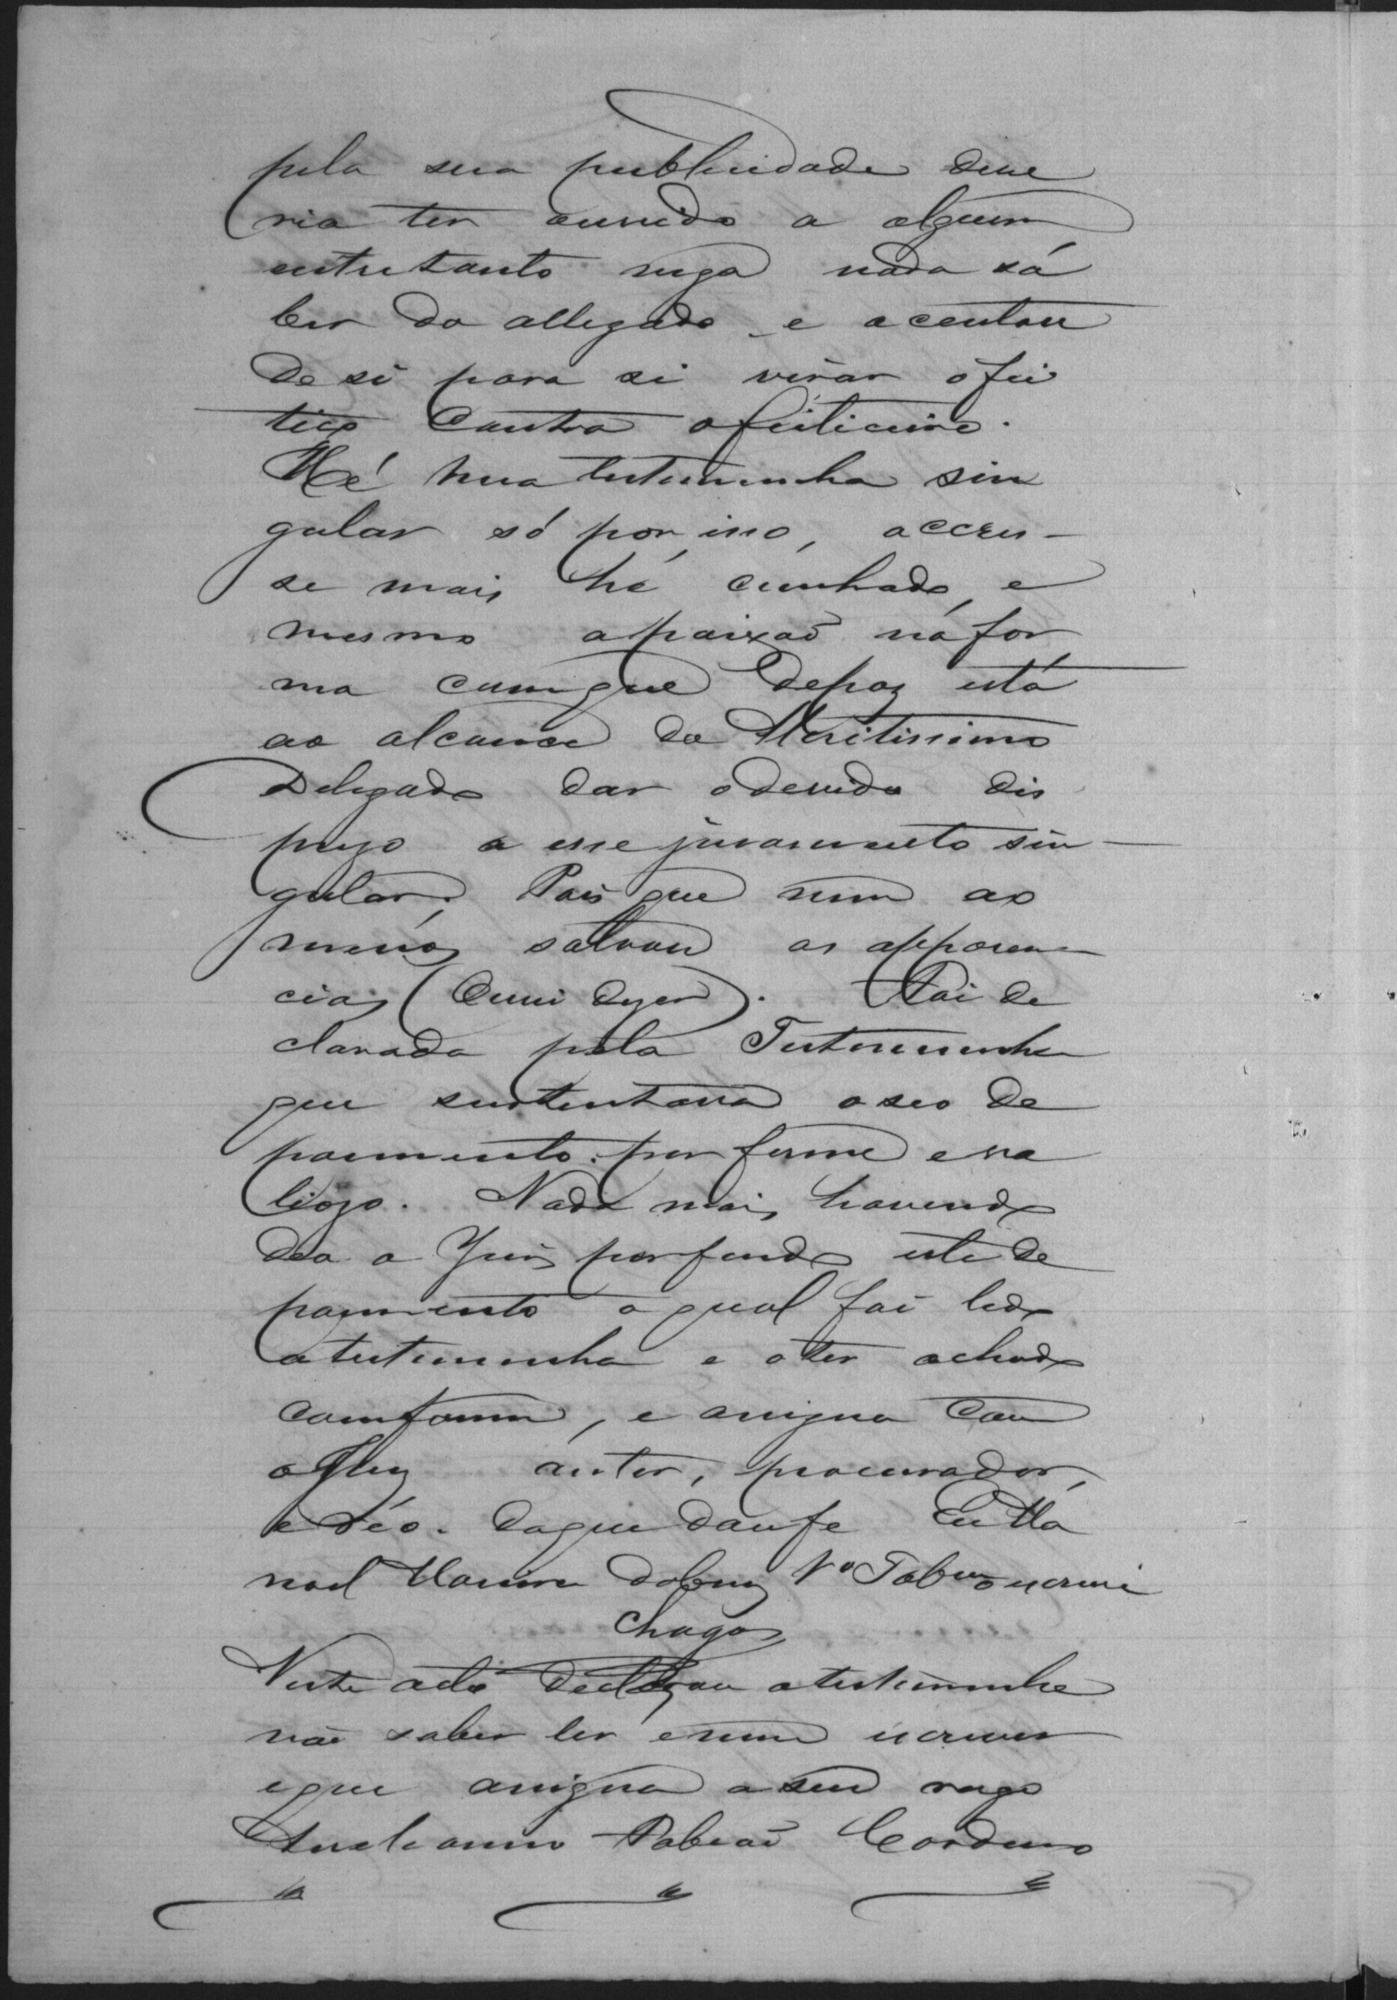 pela sua publicidade deve
ria ter ouvido a alguem
entretanto nega nada sá
ber do allegado e acentou
de si para si virar o fei
tiço contra o feiticeiro.
Hé hua testemunha sin
gular só por isso, accres-
se mais hé cunhado, e
mesmo a paixaõ na for
ma com que depoz está
ao alcance do Meritissimo
Delegado dar o devido dis
prezo a esse juramento sin-
gular. Pois que nem ao
menos salvou as apparen-
cias
Foi de
clarada pela Testemunha
que sustentava o seo de
poimento por firme e va
liozo. Nada mais havendo
deo o Juis por findo este de
poimento o qual foi lido
a testemunha e o ter achado
comforme, e assigna com
o Juiz autor, procurador,
e réo. Do que dou fe Eu Ma
noel
Chagas
Neste acto declarou a testemunha
não saber ler e nem escrever
e que assigna a seu rogo
Fabiaõ Cordeiro